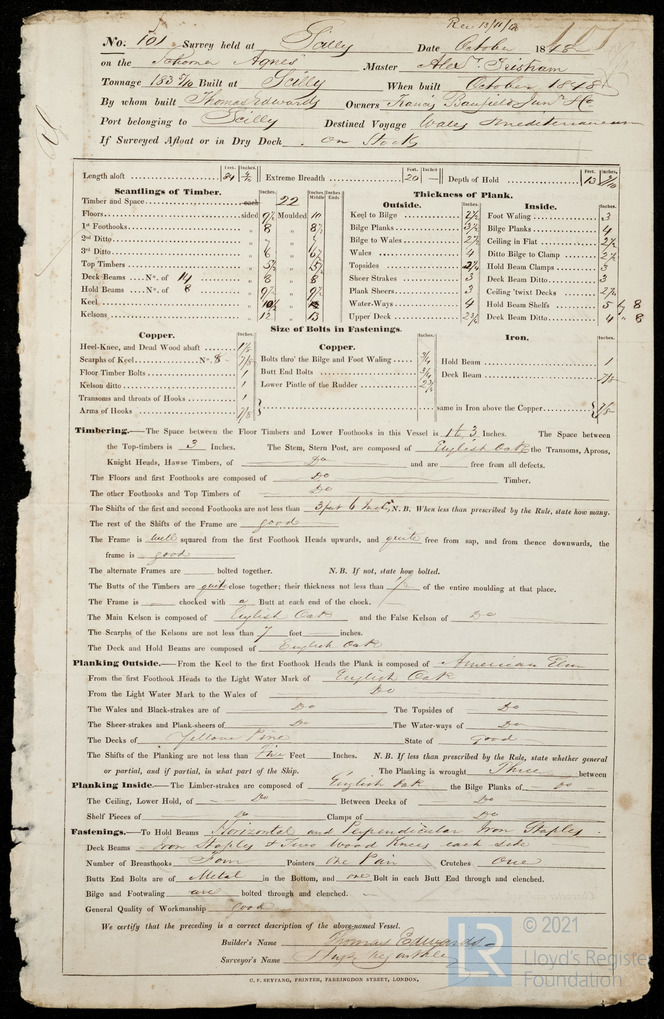 Rec 13/11/48
No. 101 Survey held at Scilly Date October 1848
on the Schooner Agnes Master Alexr. Gristram
Tonnage 183 5/10 Built at Scilly When built October 1848
By whom built Thomas Edwards Owners Francis Banfield Junr & Co
Port belonging to Scilly Destined Voyage Wales Mediterranean
If Surveyed Afloat or in Dry Dock. On Stocks
Length aloft Feet. Inches. Extreme Breadth Feet. 20 Inches. Depth of Hold Feet. 13 Inches.
Scantlings of Timber.
Timber and Space each 22
Inches. Inches Middle Inches Ends
Floors sided 9½ Moulded 10
1st Foothooks 8 " 8½
2nd Ditto
3rd Ditto
Top Timbers 5½ " 5½
Deck Beams No. of 14 8 " 8
Hold Beams No. of 8 9½ " 9½
Keel
Kelsons 12 " 13
Thickness of Plank.
Outside. Inches.
Keel to Bilge 2½
Bilge Planks 3½
Bilge to Wales 2½
Wales 4
Topsides 2½
Sheer Strakes 3
Plank Sheers 3
Water-Ways 4
Upper Deck 2¾
Inside. Inches.
Foot Waling 3
Bilge Planks 4
Ceiling in Flat 2½
Ditto Bilge to Clamp 2½
Hold Beam Clamps 3
Deck Beam Ditto 3
Ceiling 'twixt Decks 2½
Hold Beam Shelfs 5 by 8
Deck Beam Ditto 4 " 8
Size of Bolts in Fastenings.
Copper. Inches.
Heel-Knee, and Dead Wood abaft 1⅛
Scarphs of Keel No. 8 7/8
Floor Timber Bolts 1
Kelson ditto 1
Transoms and throats of Hooks 1
Arms of Hooks 7/8
Copper. Inches.
Bolts thro' the Bilge and Foot Waling ¾
Butt End Bolts ¾
Lower Pintle of the Rudder 2¾
Iron. Inches.
Hold Beam 1
Deck Beam 7/8
same in Iron above the Copper 7/8
Timbering.—The Space between the Floor Timbers and Lower Foothooks in this Vessel is 1 to 3 Inches. The Space between
the Top-timbers is 3 Inches. The Stem, Stern Post, are composed of English Oak the Transoms, Aprons,
Knight Heads, Hawse Timbers, of Do and are free from all defects.
The Floors and first Foothooks are composed of Do Timber.
The other Foothooks and Top Timbers of Do
The Shifts of the first and second Foothooks are not less than 3 feet 6 Inches N. B. When less than prescribed by the Rule, state how many.
The rest of the Shifts of the Frame are good
The Frame is well squared from the first Foothook Heads upwards, and quite free from sap, and from thence downwards, the
frame is good
The alternate Frames are bolted together. N. B. If not, state how bolted.
The Butts of the Timbers are quite close together; their thickness not less than of the entire moulding at that place.
The Frame is chocked with a Butt at each end of the chock.
The Main Kelson is composed of English Oak and the False Kelson of Do
The Scarphs of the Kelsons are not less than 7 feet inches.
The Deck and Hold Beams are composed of English Oak
Planking Outside.—From the Keel to the first Foothook Heads the Plank is composed of American Elm
From the first Foothook Heads to the Light Water Mark of English Oak
From the Light Water Mark to the Wales of Do
The Wales and Black-strakes are of Do The Topsides of Do
The Sheer-strakes and Plank-sheers of Do The Water-ways of Do
The Decks of Yellow Pine State of good
The Shifts of the Planking are not less than Five Feet Inches. N. B. If less than prescribed by the Rule, state whether general
or partial, and if partial, in what part of the Ship. The Planking is wrought Three between
Planking Inside.—The Limber-strakes are composed of English Oak the Bilge Planks of Do
The Ceiling, Lower Hold, of Do Between Decks of Do
Shelf Pieces of Do Clamps of Do
Fastenings.—To Hold Beams Horizontal and Perpendicular Iron Staples.
Deck Beams Iron Staples & Two Wood Knees each side
Number of Breasthooks Four Pointers One Pair Crutches One
Butts End Bolts are of Metal in the Bottom, and one Bolt in each Butt End through and clenched.
Bilge and Footwaling are bolted through and clenched.
General Quality of Workmanship good
We certify that the preceding is a correct description of the above-named Vessel.
Builder's Name Thomas Edwards
Surveyor's Name Hugh
C. F. SEYFANG, PRINTER, FARRINGDON STREET, LONDON.
LR © 2021
Lloyd's Register
Foundation